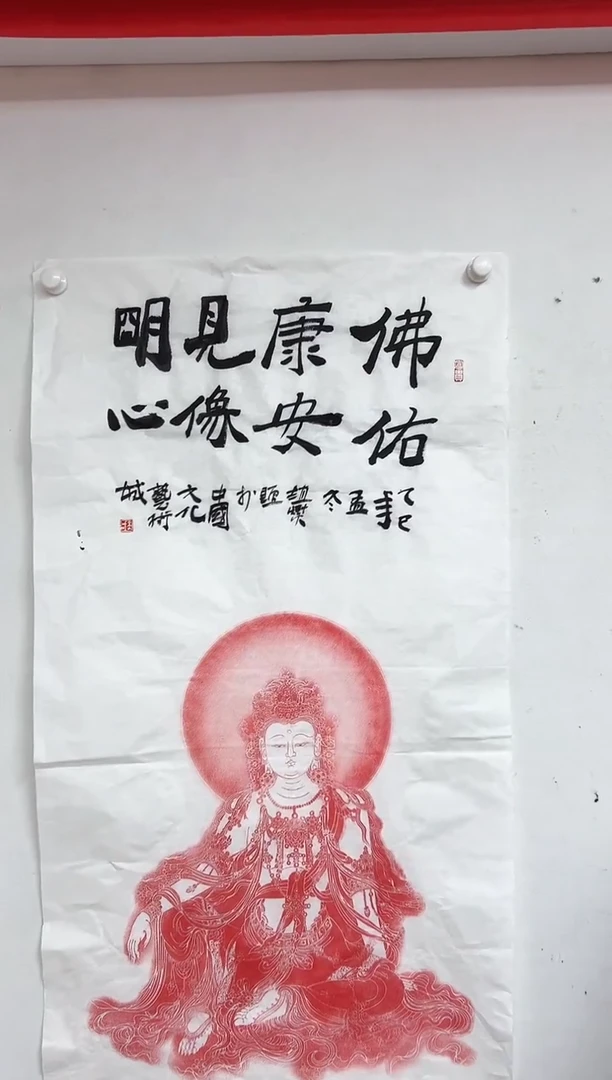 佛佑
康安
見像
明心
乙巳年
孟冬
趙
題
於
中國
文化
藝術
城